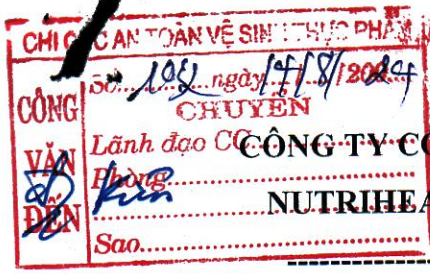 CHI CỤC AN TOÀN VỆ SINH THỰC PHẨM
CÔNG VĂN ĐẾN
Số 102 ngày 14/8/2024
CHUYỂN
Lãnh đạo CC
CÔNG TY CỔ
Phòng
NUTRIHEA
Sao